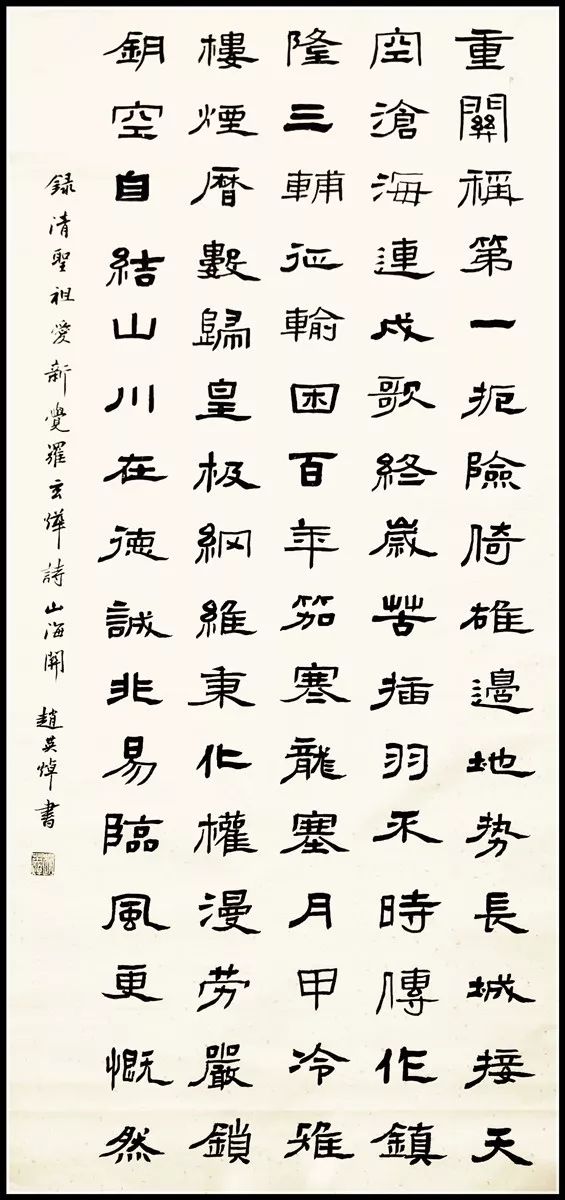 重關稱第一扼險倚雄邊地势長城接天
空滄海連戍歌終歲苦插羽不時傳作鎮
隆三輔征輸困百年笳寒龍塞月甲冷雅
樓煙曆數歸皇極網維秉化權漫劳嚴鎖
鈅空自結山川在德誠非易臨風更慨然
録清聖祖愛新覺羅玄燁詩山海關 趙英焯書